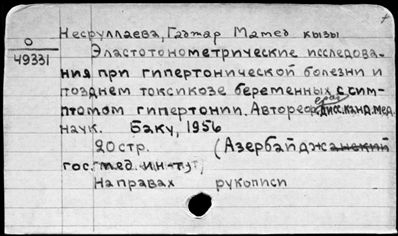 Несруллаева, Гаджар Мамед кызы
О
49331
Эластотонометрические исследова-
ния при гипертонической болезни и
позднем токсикозе беременных с симп-
томом гипертонии. Автореф. дисс. канд. мед.
наук. Баку, 1956
20 стр. (Азербайджанский
гос. мед. ин-тут)
На правах рукописи